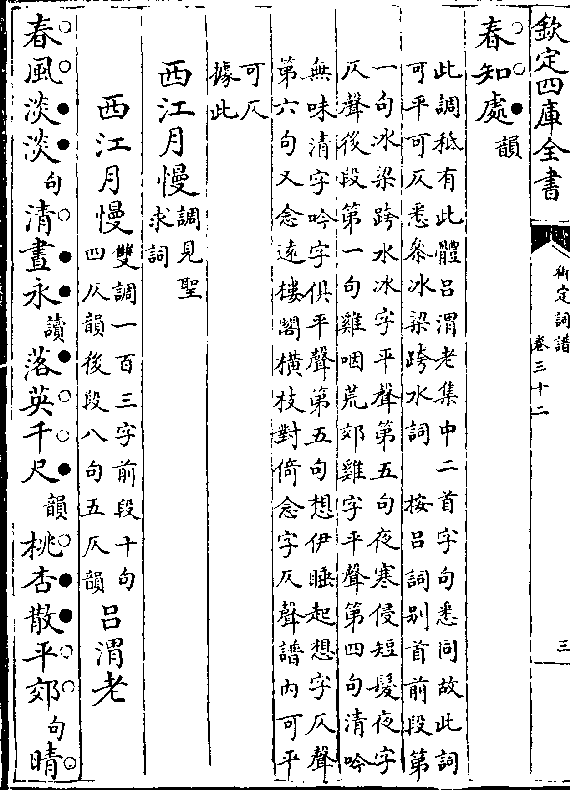 欽定四庫全書
御定詞譜
卷三十二
三
春知處韻
此調秪有此體呂渭老集中二首字句悉同故此詞
可平可仄悉叅冰梁跨水詞　按呂詞别首前段第
一句冰梁跨水冰字平聲第五句夜寒侵短髮夜字
仄聲後段第一句雞咽荒郊雞字平聲第四句清吟
無味清字吟字俱平聲第五句想伊睡起想字仄聲
第六句又念遠樓閣橫枝對倚念字仄聲譜內可平
可仄
據此
西江月慢調見聖
求詞
西江月慢雙調一百三字前段十句
四仄韻後段八句五仄韻　呂渭老
春風淡淡句清晝永讀落英千尺韻桃杏散平郊句晴